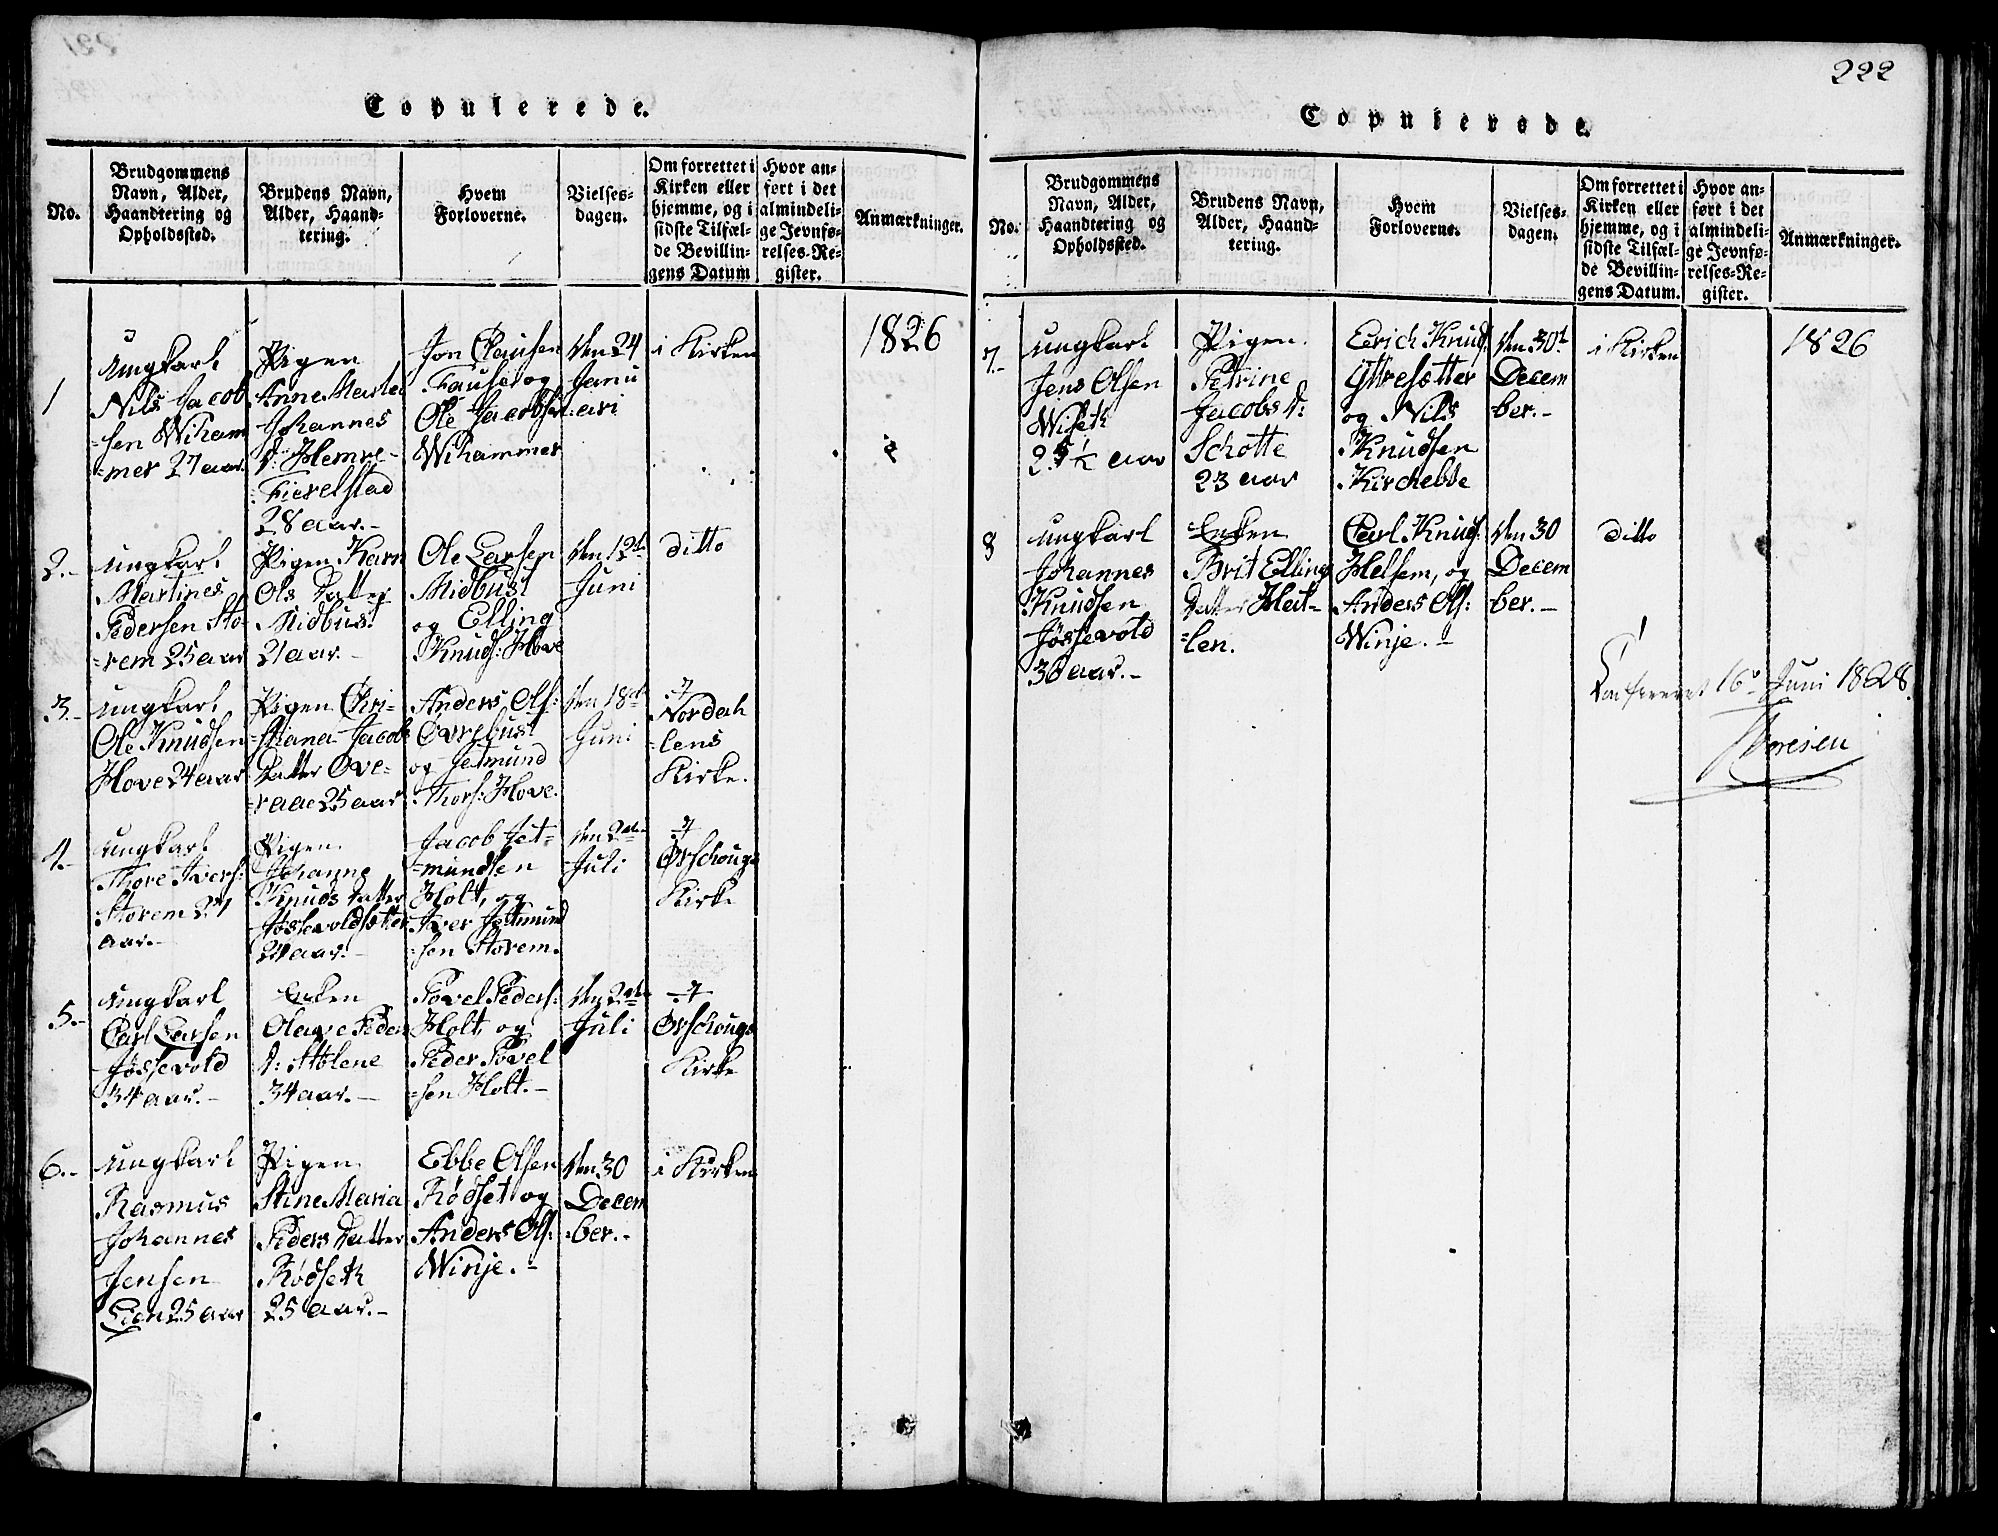 222
Copulerede.
No.
Brudgommens
Navn, Alder,
Haandtering og
Opholdssted.
Brudens Navn,
Alder, Haand-
tering.
Hvem
Forloverne.
Vielses-
dagen.
Om forrettet i
Kirken eller
hjemme, og i
sidste Tilfæl-
de Bevillin-
gens Datum
Hvor an-
ført i det
almindeli-
ge Jevnfø-
relses-Re-
gister.
Anmærkninger.
1826
1
Ungkarl
Nils Jacob
=sen Wiham
=mer 27 aar.
Pigen
Anne Marte
Johannes
D: Hemre-
Fierelstad
28 aar.-
Jon Clausen
Fause og
Ole Jacobsen
Wihammer
Den 24
Janu
:ari
i Kirken
2.-
Ungkarl
Martines
Pedersen Sto-
=rem 25 aar
Pigen Karn
Ols Datter
Midbust
21 aar.-
Ole Larsen
Midbust
og Elling
Knuds: Hove
Den 12t
Juni
ditto
3.-
Ungkarl
Ole Knudsen
Hove 24 aar
Pigen Chri-
=stiana Jacobs
Datter Ove-
=raae 25 aar
Anders Ols:
Ovrebust
og Jetmund
Thors: Hove.
Den 18de
Juni
I
Nordah
=lens
Kirke.
4.-
Ungkarl
Thore Ivers:
Storem 27
aar.-
Pigen
Johanne
Knuds Datter
Jøssevoldsetter
24 aar.-
Jacob Jet-
=mundsen
Holt, og
Iver Jetmund
=sen Storem.
Den 2de
Juli
I
Ørschougs
Kirke
5.-
Ungkarl
Carl Larsen
Jøssevold
34 aar.-
Enken
Olave Peder
D: Stølene
34 aar.-
Povel Peders:
Holt, og
Peder Povel
=sen Holt.-
Den 2de
Juli
I
Ørschougs
Kirke
6.-
Ungkarl
Rasmus
Johannes
Jensen
Lien 25 aar
Pigen
Stine Maria
Peders Datter
Rødseth
25 aar.-
Ebbe Olsen
Rødset og
Anders Ols:
Winje.-
Den 30
Decem
=ber.-
i Kirken
Copulerede.
No.
Brudgommens
Navn, Alder,
Haandtering og
Opholdssted.
Brudens Navn,
Alder, Haand-
tering.
Hvem
Forloverne.
Vielses-
dagen.
Om forrettet i
Kirken eller
hjemme, og i
sidste Tilfæl-
de Bevillin-
gens Datum.
Hvor an-
ført i det
almindeli-
ge Jevnfø-
relses-Re-
gister.
Anmærkninger.
1826
7.-
Ungkarl
Jens Olsen
Wiseth
25½ aar
Pigen
Petrine
Jacobs D:
Schotte
23 aar
Eerich Knud:
Yttresetter
og Nils
Knudsen
Kirchebøe
Den 30t
Decem
=ber.-
i Kirken
8
Ungkarl
Johannes
Knudsen
Jøssevold
36 aar.-
Enken
Brit Elling
Datter Hal-
=len.
Carl Knud:
Helsem, og
Anders Ols:
Winje.-
Den 30
Decem
ber.-
ditto
Confereret 16de Juni 1828.
Thoresen